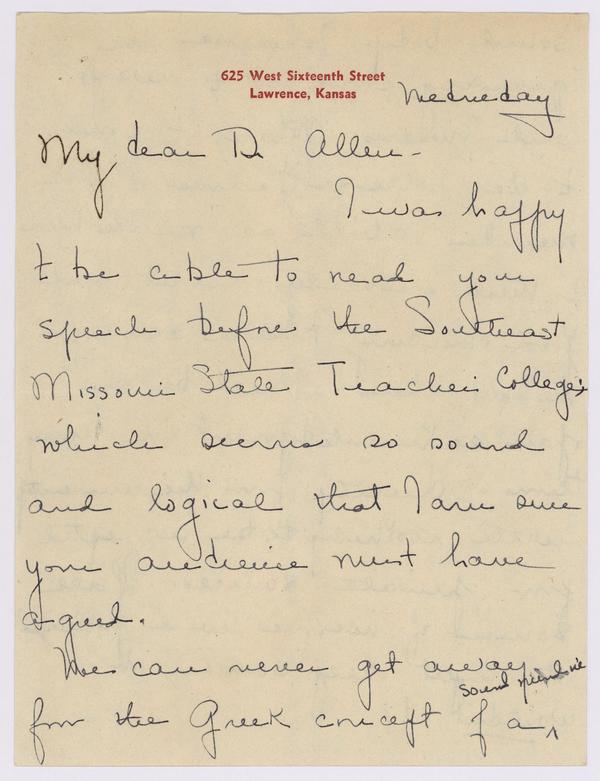 625 West Sixteenth Street
Lawrence, Kansas
Wednesday
My dear Dr Allen -
I was happy
to be able to read your
speech before the Southeast
Missouri State Teachers College,
which seems so sound
and logical that I am sure
your audience must have
agreed.
We can never get away
sound mind in
from the Greek concept of a ^